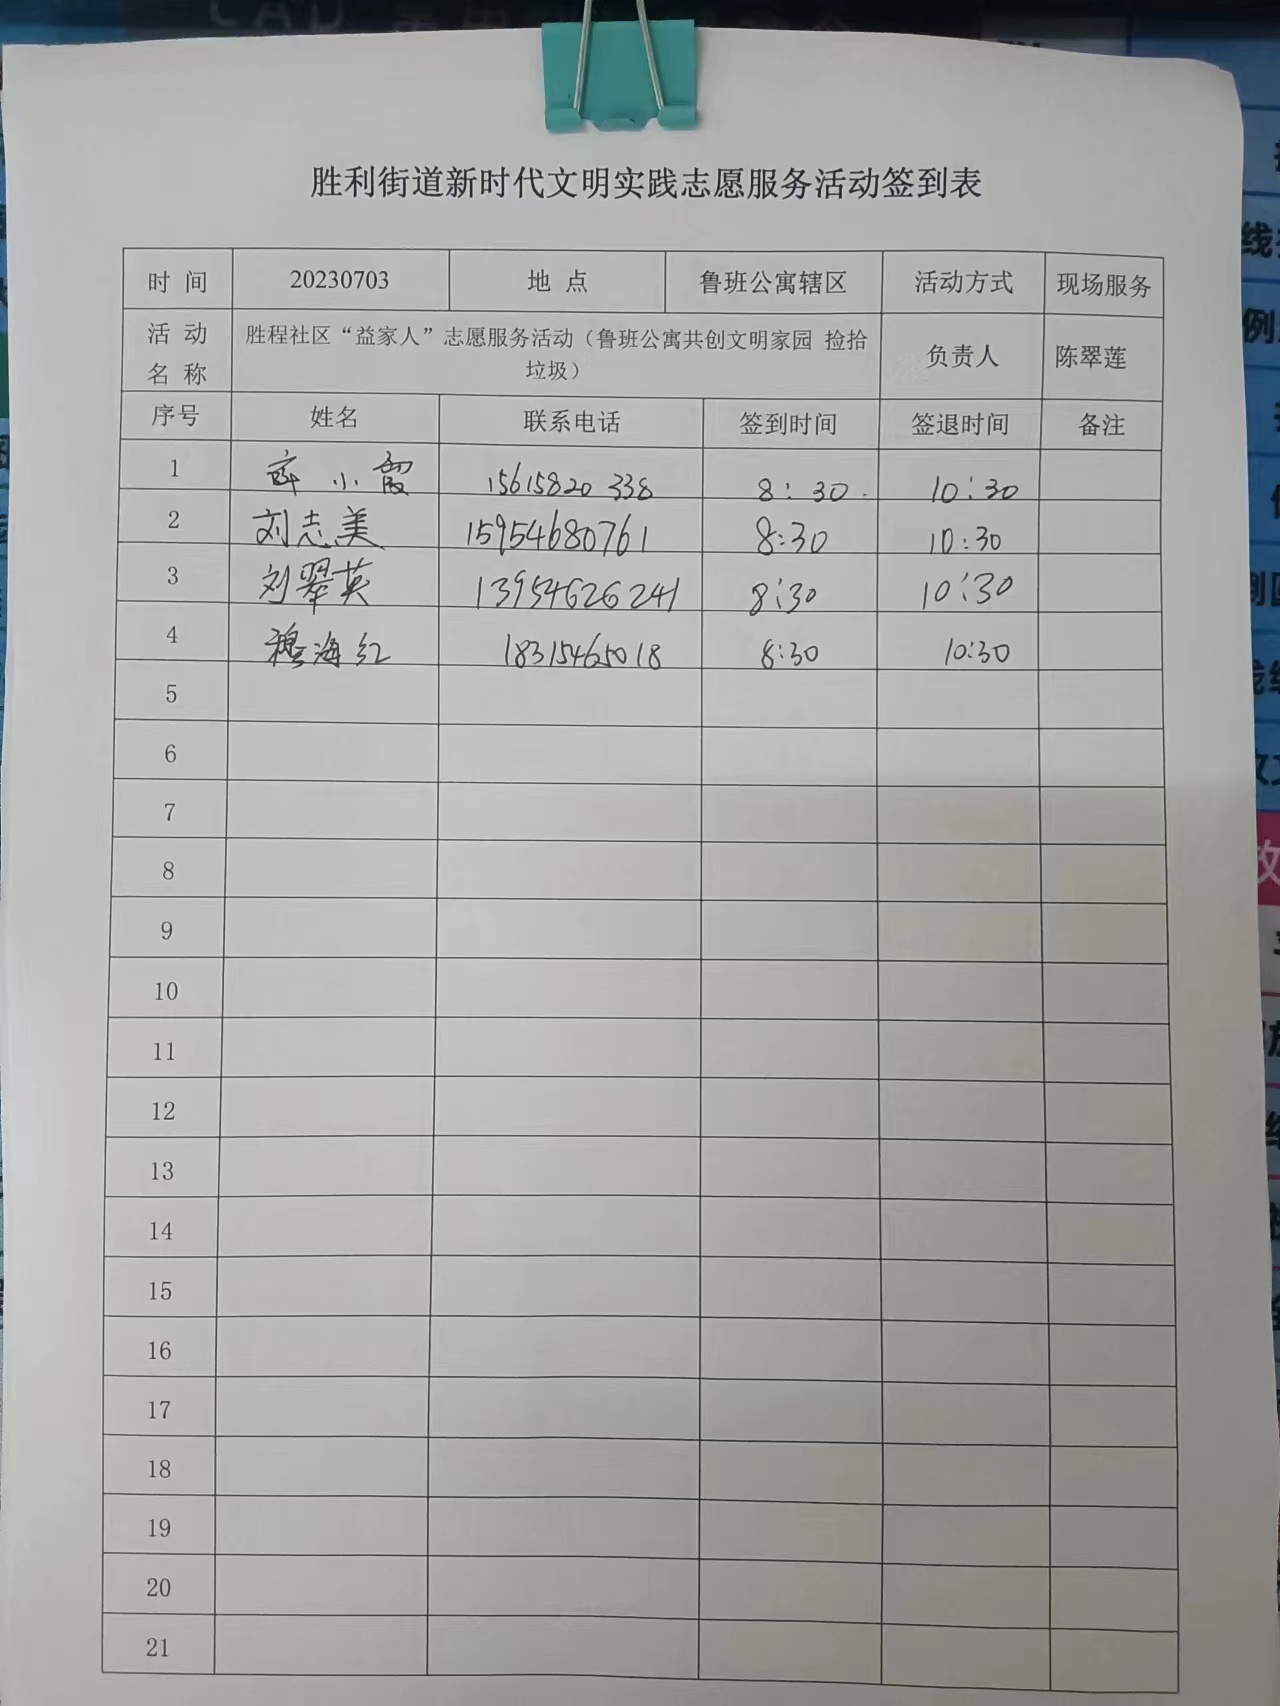 胜利街道新时代文明实践志愿服务活动签到表
时 间 20230703 地 点 鲁班公寓辖区 活动方式 现场服务
活 动 名 称 胜程社区“益家人”志愿服务活动（鲁班公寓共创文明家园 捡拾
垃圾） 负责人 陈翠莲
序号 姓名 联系电话 签到时间 签退时间 备注
1 薛小霞 15615820338 8:30 10:30
2 刘志美 15954680761 8:30 10:30
3 刘翠英 13954626241 8:30 10:30
4 穆海红 18315465018 8:30 10:30
5
6
7
8
9
10
11
12
13
14
15
16
17
18
19
20
21